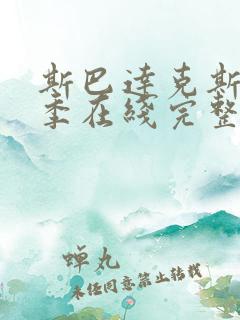 斯巴达克斯
季在线完整
蝉丸
未经同意禁止转载